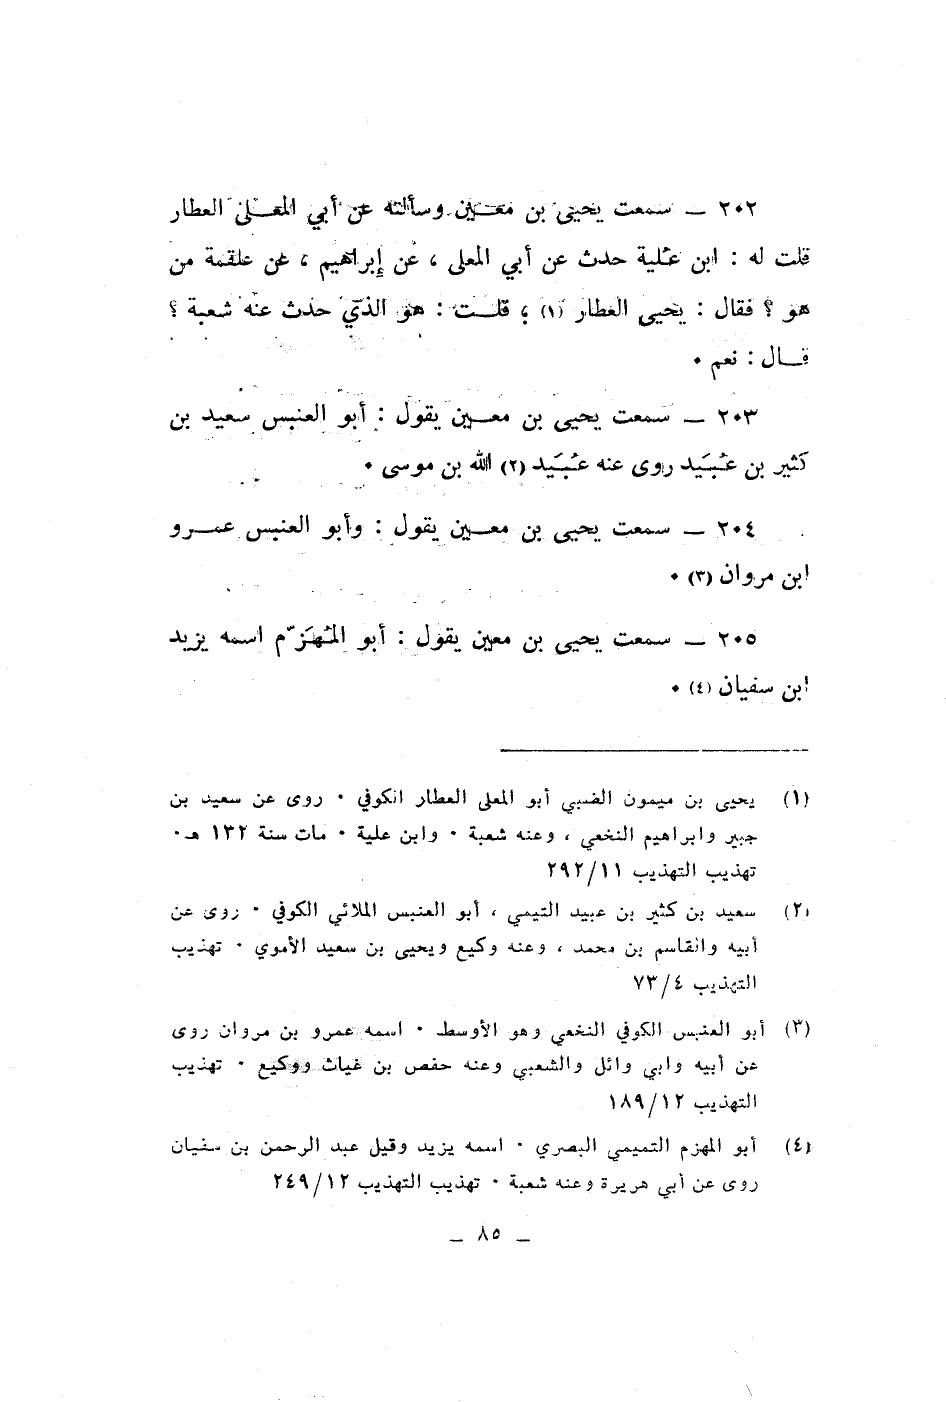 ٢٠٢ ــ سمعت يحيى بن معــين وسألته عن أبي المعــلى العطار
قلت له : ابن عُلية حدث عن أبي المعلى ، عن إبراهيم ، عن علقمة من
هو ؟ فقال : يحيى العطار (١) ؛ قلــت : هو الذي حدث عنه شعبة ؟
قــال : نعم ٠
٢٠٣ ــ سمعت يحيى بن معــين يقول : أبو العنبس سعيد بن
كثير بن عُبَيد روى عنه عُبَيد (٢) الله بن موسى ٠
٢٠٤ ــ سمعت يحيى بن معــين يقول : وأبو العنبس عمــرو
ابن مروان (٣) ٠
٢٠٥ ــ سمعت يحيى بن معين يقول : أبو المُهَزّم اسمه يزيد
ابن سفيان (٤) ٠
(١) يحيى بن ميمون الضبي أبو المعلى العطار الكوفي ٠ روى عن سعيد بن
جبير وابراهيم النخعي ، وعنه شعبة ٠ وابن علية ٠ مات سنة ١٣٢ هـ٠
تهذيب التهذيب ١١/٢٩٢
(٢) سعيد بن كثير بن عبيد التيمي ، أبو العنبس الملائي الكوفي ٠ روى عن
أبيه والقاسم بن محمد ، وعنه وكيع ويحيى بن سعيد الأموي ٠ تهذيب
التهذيب ٤/٧٣
(٣) أبو العنبس الكوفي النخعي وهو الأوسط ٠ اسمه عمرو بن مروان روى
عن أبيه وابي وائل والشعبي وعنه حفص بن غياث ووكيع ٠ تهذيب
التهذيب ١٢/١٨٩
(٤) أبو المهزم التميمي البصري ٠ اسمه يزيد وقيل عبد الرحمن بن سفيان
روى عن أبي هريرة وعنه شعبة ٠ تهذيب التهذيب ١٢/٢٤٩
ــ ٨٥ ــ